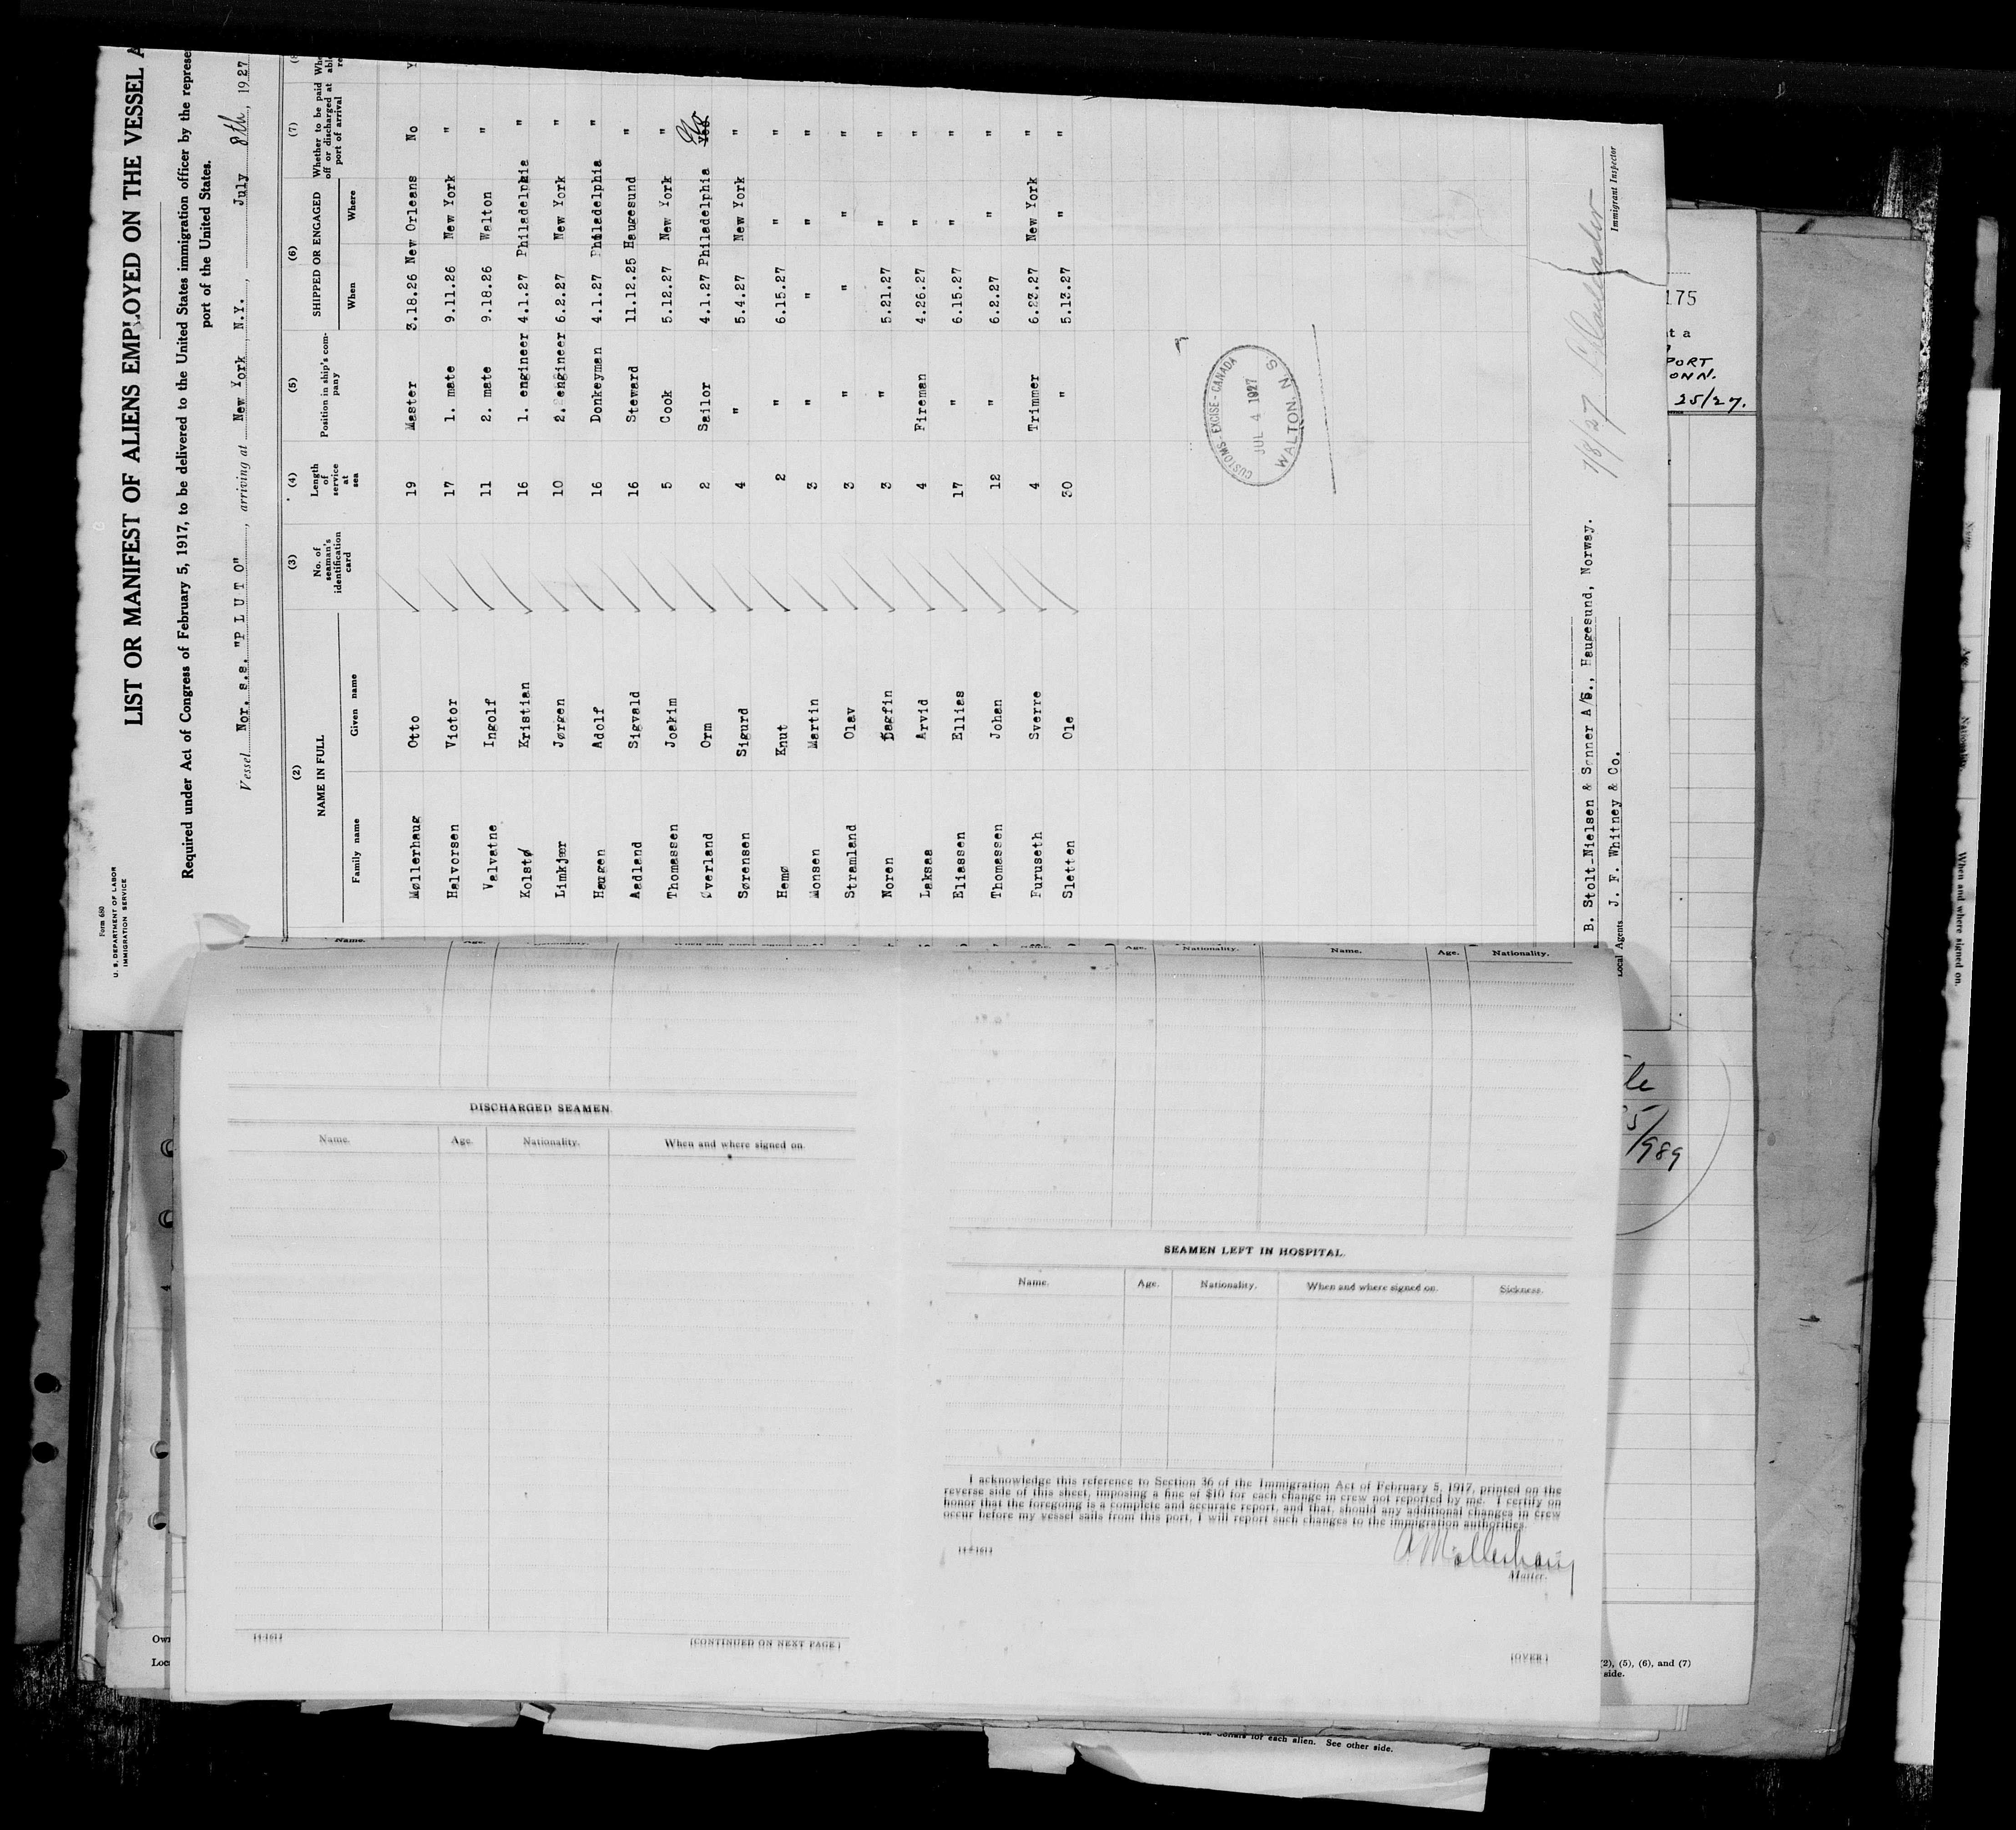 Form 680
U. S. DEPARTMENT OF LABOR
IMMIGRATION SERVICE
LIST OR MANIFEST OF ALIENS EMPLOYED ON THE VESSEL A
Required under Act of Congress of February 5, 1917, to be delivered to the United States immigration officer by the represe
port of the United States.
Vessel Nor. s.s. "P L U T O", arriving at New York, N.Y., July 8th, 1927
(2) (3) (4) (5) (6) (7)
NAME IN FULL
Family name Given name
No. of seaman's identification card
Length of service at sea
Position in ship's company
SHIPPED OR ENGAGED
When Where
Whether to be paid off or discharged at port of arrival
Møllerhaug Otto 19 Master 3.18.26 New Orleans No
Halvorsen Victor 17 1. mate 9.11.26 New York "
Valvatne Ingolf 11 2. mate 9.18.26 Walton "
Kolstø Kristian 16 1. engineer 4.1.27 Philadelphia "
Limkjær Jørgen 10 2. engineer 6.2.27 New York "
Haugen Adolf 16 Donkeyman 4.1.27 Philadelphia "
Aadland Sigvald 16 Steward 11.12.25 Haugesund "
Thomassen Joakim 5 Cook 5.12.27 New York "
Øverland Orm 2 Sailor 4.1.27 Philadelphia Yes No
Sørensen Sigurd 4 " 5.4.27 New York "
Hemø Knut 2 " 6.15.27 " "
Monsen Martin 3 " " " "
Stramland Olav 3 " " " "
Noren Dagfin 3 " 5.21.27 " "
Laksaa Arvid 4 Fireman 4.26.27 " "
Eliassen Ellias 17 " 6.15.27 " "
Thomassen Johan 12 " 6.2.27 " "
Furuseth Sverre 4 Trimmer 6.23.27 New York "
Sletten Ole 30 " 5.13.27 " "
CUSTOMS-EXCISE-CANADA
JUL 4 1927
WALTON, N. S.
B. Stolt-Nielsen & Sønner A/S., Haugesund, Norway.
Local Agents J. F. Whitney & Co.
7/8/27
Immigrant Inspector
175
t a
PORT
ONN.
25/27.
Name. Age. When and where signed on. Age. Nationality. Name. Age. Nationality.
DISCHARGED SEAMEN.
Name. Age. Nationality. When and where signed on.
14-1613
[CONTINUED ON NEXT PAGE]
SEAMEN LEFT IN HOSPITAL.
Name. Age. Nationality. When and where signed on. Sickness.
I acknowledge this reference to Section 36 of the Immigration Act of February 5, 1917, printed on the
reverse side of this sheet, imposing a fine of $10 for each change in crew not reported by me. I certify on
honor that the foregoing is a complete and accurate report, and that, should any additional changes in crew
occur before my vessel sails from this port, I will report such changes to the immigration authorities.
O Møllerhaug
Master.
14-1613
[OVER]
5/989
Own
Loca
(2), (5), (6), and (7)
side.
for each alien. See other side.
Name. Age. Nationality. When and where signed on.